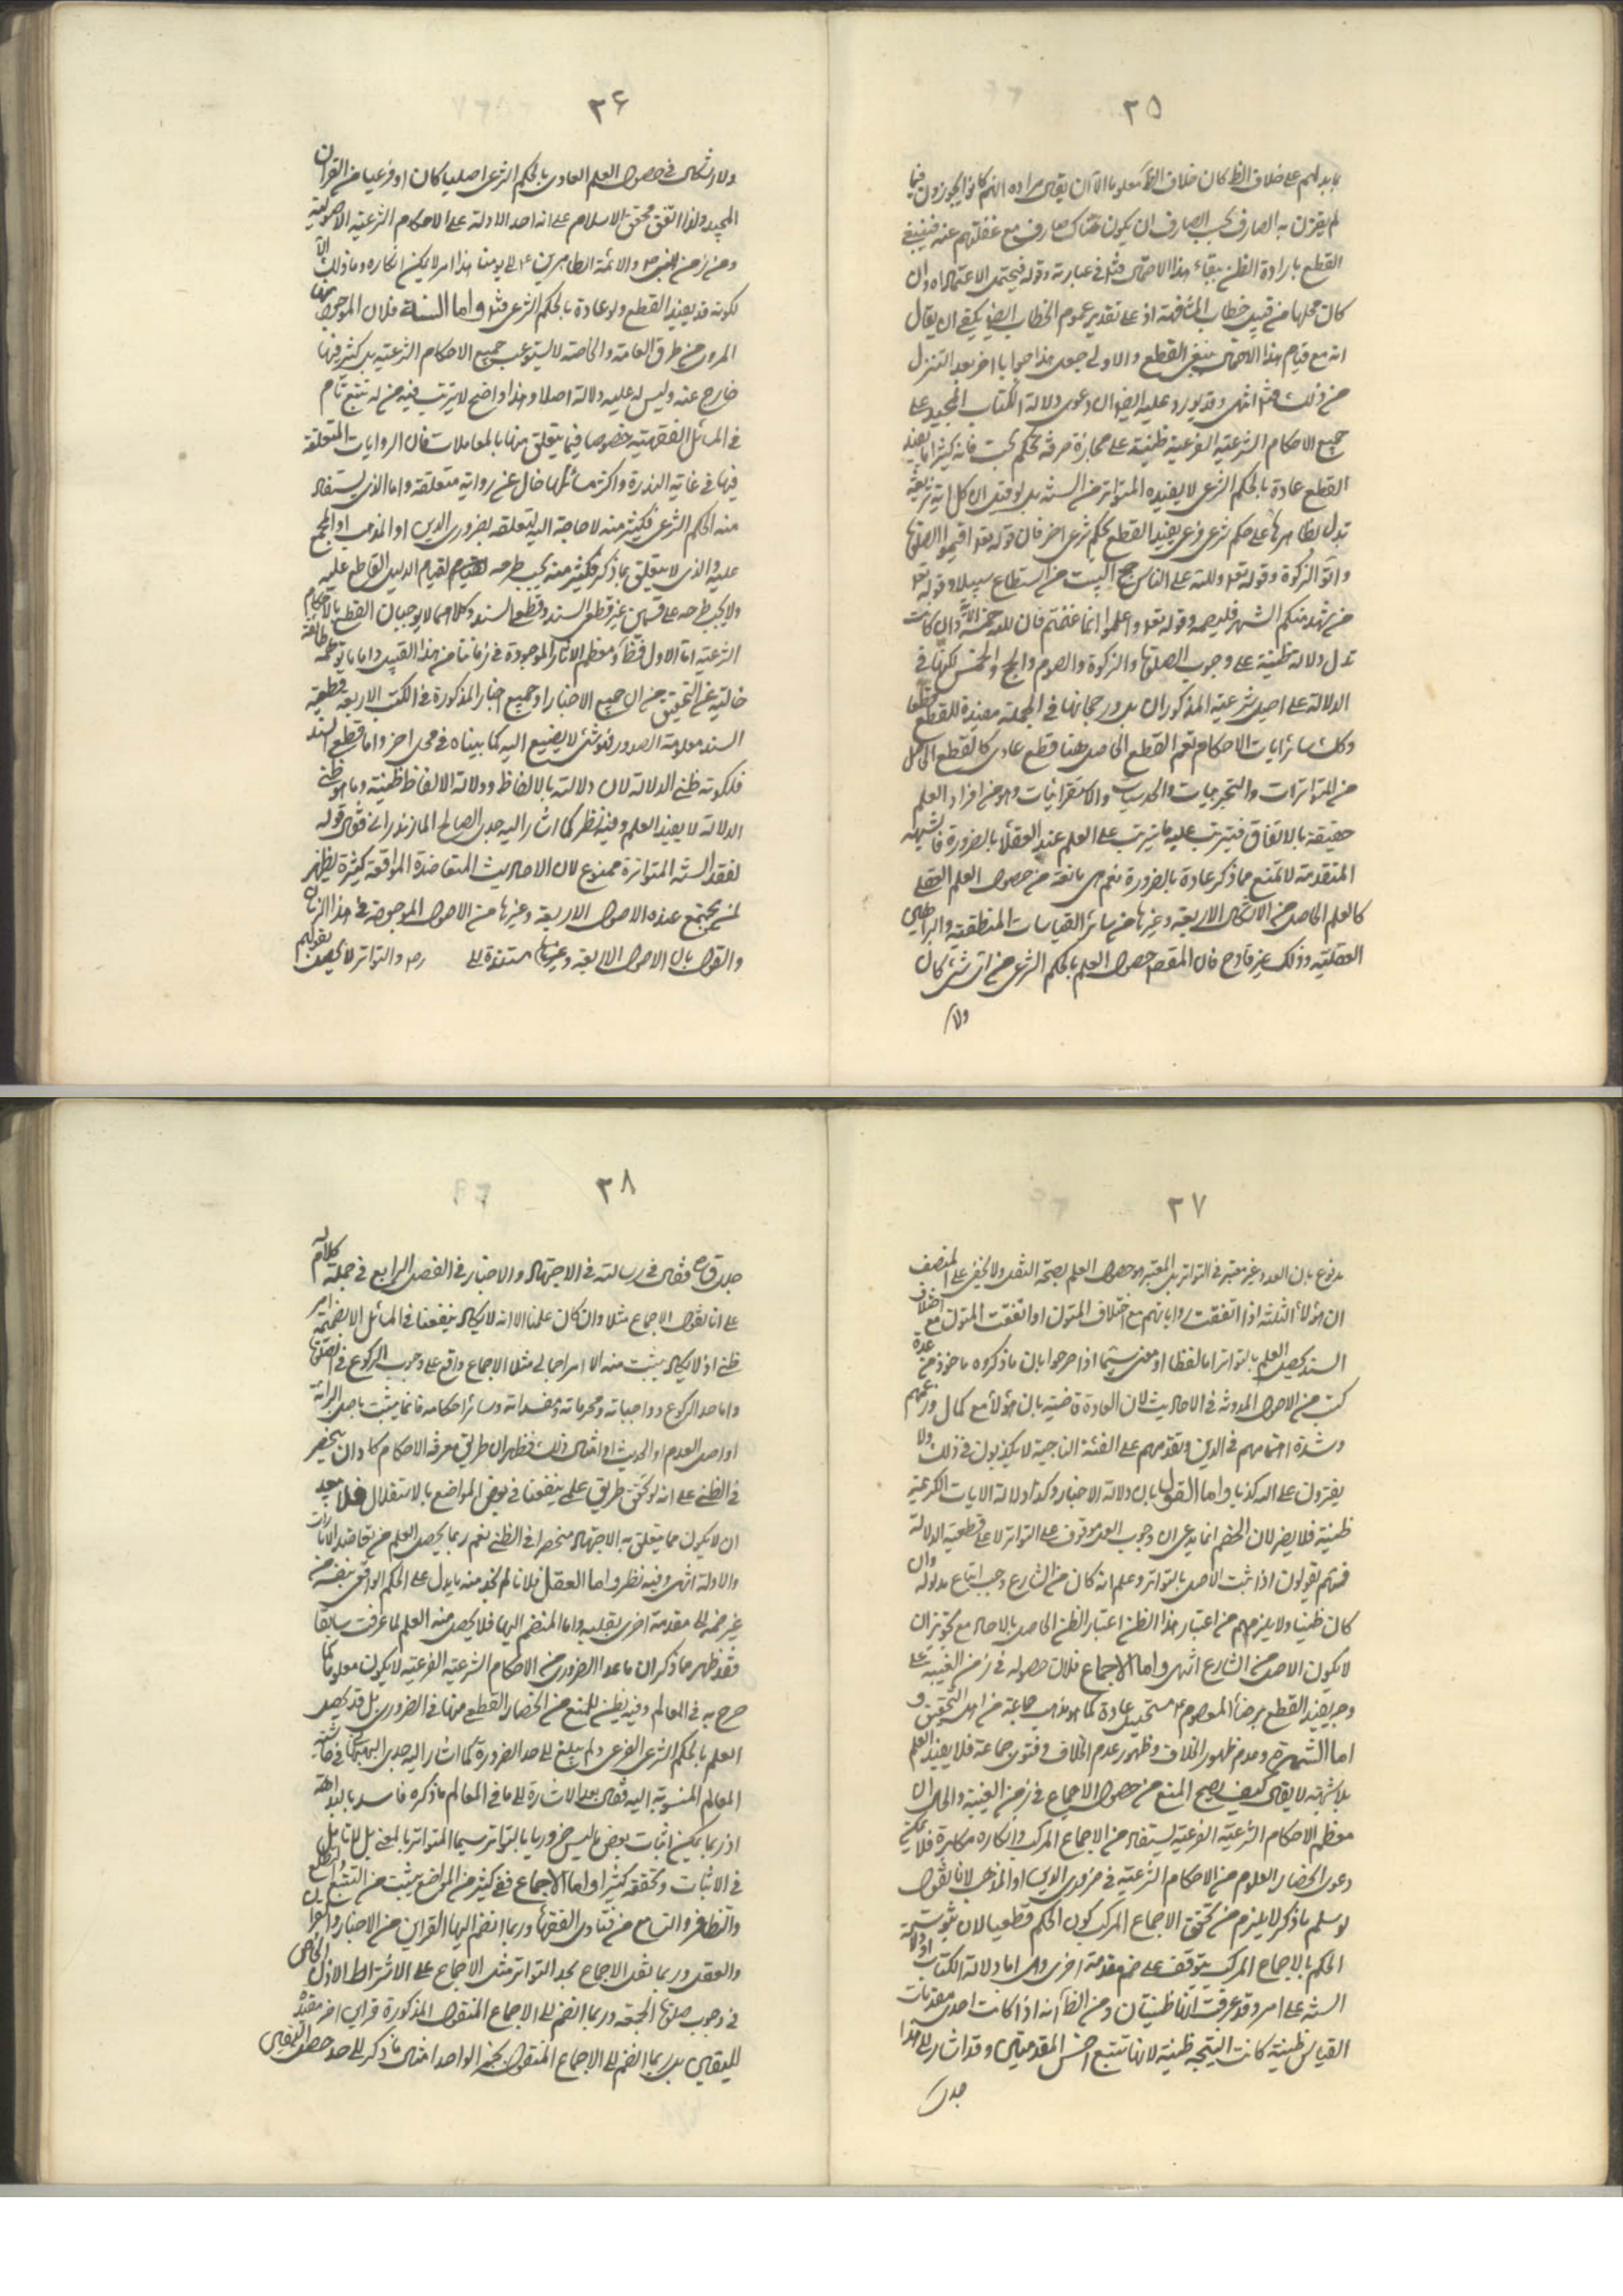 ٢٥
ما يدلهم على خلاف الظ كان خلاف الظ معلوما الا ان يقال مراده انهم كانوا يجوزون فيما
لم يقترن به الصارف بحسب الصارف ان يكون هناك صارف مع غفلتهم عنه فينبغي
القطع بارادة الظن ببقاء هذا الاحتمال فتل في عبارته وقوله فيحتمل الاعتماد اه وان
كانت محلها من قبيل خطاب المشافهة اذ على تقدير عموم الخطاب ايضا يكفي ان يقال
انه مع قيام هذا الاحتمال ينبغي القطع والاولى جعل هذا جوابا اخر بعد التنزل
عن ذلك فتل انتهى وقد يورد عليه ايضا ان دعوى دلالة الكتاب المجيد على
جميع الاحكام الشرعية الفرعية ظنية على مجازفة صرفه تحكم بحت فانه كثيرا ما يفيد
القطع عادة بالحكم الشرعي لا يفيده المتواتر من السنة بل لو قيل ان كل اية شريفة
تدل بظاهرها على حكم شرعي فرعي يفيد القطع بحكم شرعي اخر فان قوله تعه اقيموا الصلوة
واتوا الزكوة وقوله تعه ولله على الناس حج البيت من استطاع سبيلا وقوله تعه
من شهد منكم الشهر فليصمه وقوله تعه واعلموا انما غنمتم فان لله خمسه الاية وان كانت
تدل دلالة ظنية على وجوب الصلوة والزكوة والصوم والحج والخمس لكونها في
الدلالة على اصل شرعية المذكورات بل ورجحانها في الجملة مفيدة للقطع قطعا
وكك سائر ايات الاحكام نعم القطع الحاصل هنا قطع عادي كالقطع الحاصل
من المتواترات والتجربيات والحدسيات والاستقرائيات وهو من افراد العلم
حقيقة بالاتفاق فيترتب عليه ما يترتب على العلم عند العقلا بالضرورة فالشبهة
المتقدمة لا تمنع مما ذكر عادة بالضرورة نعم هي مانعة من حصول العلم العقلي
كالعلم الحاصل من الاشكال الاربعة وغيرها من سائر القياسات المنطقية والبراهين
العقلية وذلك غير قادح فان المقصم حصول العلم بالحكم الشرعي من اي شئ كان
ولا
٢۶
ولا اشكال في حصول العلم العادي بالحكم الشرعي اصليا كان او فرعيا من القران
المجيد ولذا اتفق محققو الاسلام على انه احد الادلة على الاحكام الشرعية الاصولية
ومن زمن النبي ص والائمة الطاهرين ع الى يومنا هذا امر لا يمكن انكاره وما ذلك الا
لكونه قد يفيد القطع ولو عادة بالحكم الشرعي فتل واما السنة فلان الموجود منها
المروي من طرق العامة والخاصة لا يستوعب جميع الاحكام الشرعية بل كثير منها
خارج عنه وليس له عليه دلالة اصلا وهذا واضح لا يرتب فيه من له تتبع تام
في المسائل الفقهية خصوصا فيما يتعلق منها بالمعاملات فان الروايات المتعلقة
فيها في غاية الندرة واكثر مسائلها خال عن رواية متعلقة واما الذي يستفاد
منه الحكم الشرعي فكثير منه لا حاجة اليه لتعلقه بضروري الدين او المذهب او المجمع
عليه والذي لا يتعلق بما ذكر فكثير منه يجب طرحه لقيام الدليل القاطع عليه
ولا يجب طرحه على قسمين غير قطعي السند وقطعي السند وكلاهما لا يوجبان القطع بالاحكام
الشرعية اما الاول فظ ومعظم الاثار الموجودة في زماننا من هذا القبيل واما ما توهمه طائفة
خالية عن التحقيق من ان جميع الاخبار او جميع اخبار المذكورة في الكتب الاربعة قطعية
السند معلومة الصدور فهو شئ لا يصغى اليه كما بيناه في محل اخر واما قطعي السند
فلكونه ظني الدلالة لان دلالته بالالفاظ ودلالة الالفاظ ظنية وما هو ظني
الدلالة لا يفيد العلم وفيه نظر كما اشار اليه جدي الصالح المازندراني فقال قوله
لفقد السنة المتواترة ممنوع لان الاحاديث المتعاضدة المواقعة كثيرة يظهر
لمن يجتمع عنده الاصول الاربعة وغيرها من الاصول الموجودة في هذا الزمان
والقول بان الاصول الاربعة وغيرها مستندة الى رجه والتواتر لا يحصل بقولهم
٢٧
مدفوع بان العدد غير معتبر في التواتر بل المعتبر هو حصول العلم بصحة النقل ولا يخفى على المنصف
ان هؤلاء الثلثة اذا اتفقت رواياتهم مع اختلاف المتون او اتفقت المتون مع اختلاف
السند يحصل العلم بالتواتر اما لفظا او معنى سيما اذا صرحوا بان ما ذكروه ماخوذ من عدة
كتب من الاصول المدونة في الاحاديث لان العادة قاضية بان هؤلاء مع كمال ورعهم
وشدة اهتمامهم في الدين وتقدمهم على الفئة الناجية لا يكذبون في ذلك ولا
يفترون على الله كذبا واما القول بان دلالة الاخبار وكذا دلالة الايات الكريمة
ظنية فلا يضر لان الخصم انما يدعي ان وجوب العمل موقوف على التواتر لا على قطعية الدلالة
فانهم يقولون اذا ثبت الاصل بالتواتر وعلم انه كان من الشارع وجب اتباع مدلوله وان
كان ظنيا ولا يلزمهم من اعتبار هذا الظن اعتبار الظن الحاصل بالاحاد مع تجويز ان
لا يكون الاصل من الشارع انتهى واما الاجماع فلان حصوله في زمن الغيبة على
وجه يفيد القطع برضاء المعصوم ع مستحيل عادة كما هو مذهب جماعة من اهل التحقيق و
اما الشهرة وعدم ظهور الخلاف وظهور عدم الخلاف وفتوى جماعة فلا يفيد العلم
بلا شبهة لا يقال كيف يصح المنع من حصول الاجماع في زمن الغيبة والحال ان
معظم الاحكام الشرعية الفرعية يستفاد من الاجماع المركب وانكاره مكابرة فلا يمكن
دعوى انحصار العلوم من الاحكام الشرعية في ضروري الدين او المذهب لانا نقول
لو سلم ما ذكر لا يلزم من تحقق الاجماع المركب كون الحكم قطعيا لان ثبوت تتمة
الحكم بالاجماع المركب يتوقف على ضم مقدمة اخرى وهي اما دلالة الكتاب او دلالة
السنة على امر وقد عرفت انهما ظنيتان ومن الظ انه اذا كانت احدى مقدمات
القياس ظنية كانت النتيجة ظنية لانها تتبع اخس المقدمتين وقد اشار الى هذا
جدي
٢٨
جدي قده فقال في رسالته في الاجتهاد والاخبار في الفصل الرابع في جملة كلام له
على انا نقول الاجماع مثلا وان كان علميا الا انه لا يكاد ينفعنا في المسائل الا بضميمة امر
ظني اذ لا يكاد يثبت منه الا امر اجمالي مثلا الاجماع واقع على وجوب الركوع في الصلوة
واما حد الركوع وواجباته ومحرماته ومفسداته وسائر احكامه فانما يثبت باصل البرائة
او اصل العدم او الحديث او امثال ذلك فظهر ان طريق معرفة الاحكام كاد ان ينحصر
في الظن على انه لو تحقق طريق علمي ينفعنا في بعض المواضع بالاستقلال فلا يبعد
ان لا يكون مما يتعلق به الاجتهاد منحصرا في الظني نعم ربما يحصل العلم من تعاضد الامارات
والادلة انتهى وفيه نظر واما العقل فلانا لم نجد منه ما يدل على الحكم الواقعي بنفسه من
غير ضميمة الى مقدمة اخرى نقلية واما المنضم اليها فلا يحصل منه العلم لما عرفت سابقا
فقد ظهر مما ذكر ان ما عدا الضروري من الاحكام الشرعية الفرعية لا يكون معلوما كما
صرح به في المعالم وفيه نظر للمنع من انحصار القطعي منها في الضروري بل قد يحصل
العلم بالحكم الشرعي الفرعي ولم يبلغ الى حد الضرورة كما اشار اليه جدي البهبهاني في حاشية
المعالم المنسوبة اليه فقال بعد الاشارة الى ما في المعالم ما ذكره فاسد بالبداهة
اذ ربما يمكن اثبات بعض ما ليس ضروريا بالتواتر سيما المتواتر بالمعنى بل لا تامل
في الاثبات وتحققه كثيرا واما الاجماع ففي كثير من المواضع يثبت من التتبع والتطلع
والتظافر والتسامع من فتاوى الفقهاء وربما انضم اليها القراين من الاخبار والقران
والعقل وربما نقل الاجماع بحد التواتر مثل الاجماع على الاشتراط الاذن الخاص
في وجوب صلوة الجمعة وربما انضم الى الاجماع المنقول المذكورة قراين اخر مفيدة
لليقين بل ربما انضم الى الاجماع المنقول بخبر الواحد امثال ما ذكر الى حد حصول اليقين